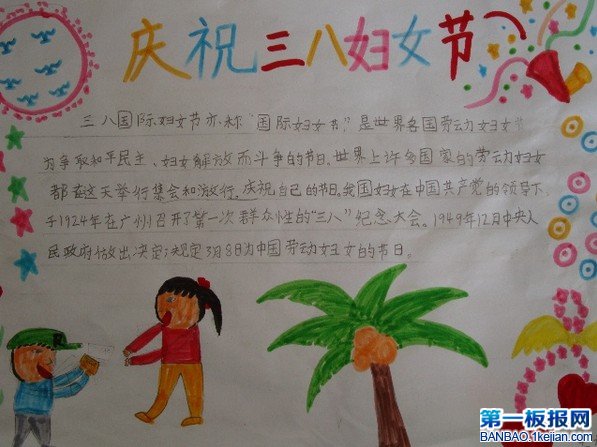 庆祝三八妇女节
三八国际妇女节亦称"国际妇女节",是世界各国劳动妇女节
为争取和平民主、妇女解放而斗争的节日。世界上许多国家的劳动妇女
都在这天举行集会和游行,庆祝自己的节日。我国妇女在中国共产党的领导下,
于1924年在广州召开了第一次群众性的"三八"纪念大会。1949年12月中央人
民政府做出决定;规定3月8日为中国劳动妇女的节日。
第一板报网
BANBAO.1kejian.com